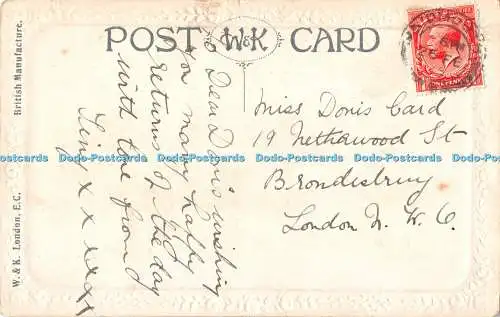 POST W&K CARD
Dear Doris wishing
you many happy
returns of the day
with love from
x x x x x x
Miss Doris Card
19 Nethawood St
Brondesbury
London N. W. 6.
British Manufacture.
W. & K. London, E.C.
Dodo-Postcards Dodo-Postcards Dodo-Postcards Dodo-Postcards Dodo-Postcards